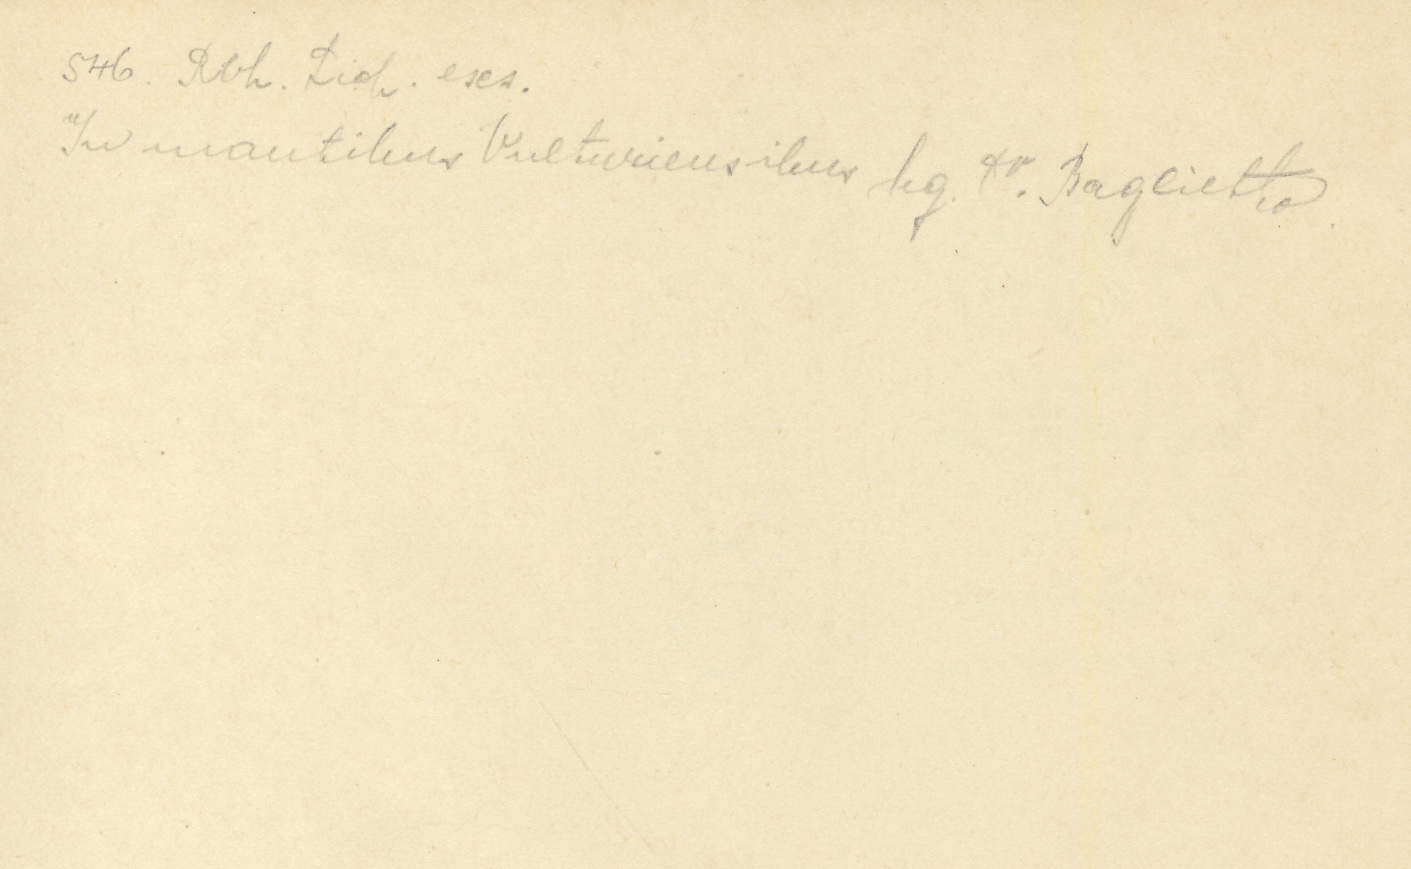 546. Rbh. Lich. exs.
"In montibus Vulturiensibus lég. Fr. Baglietto.